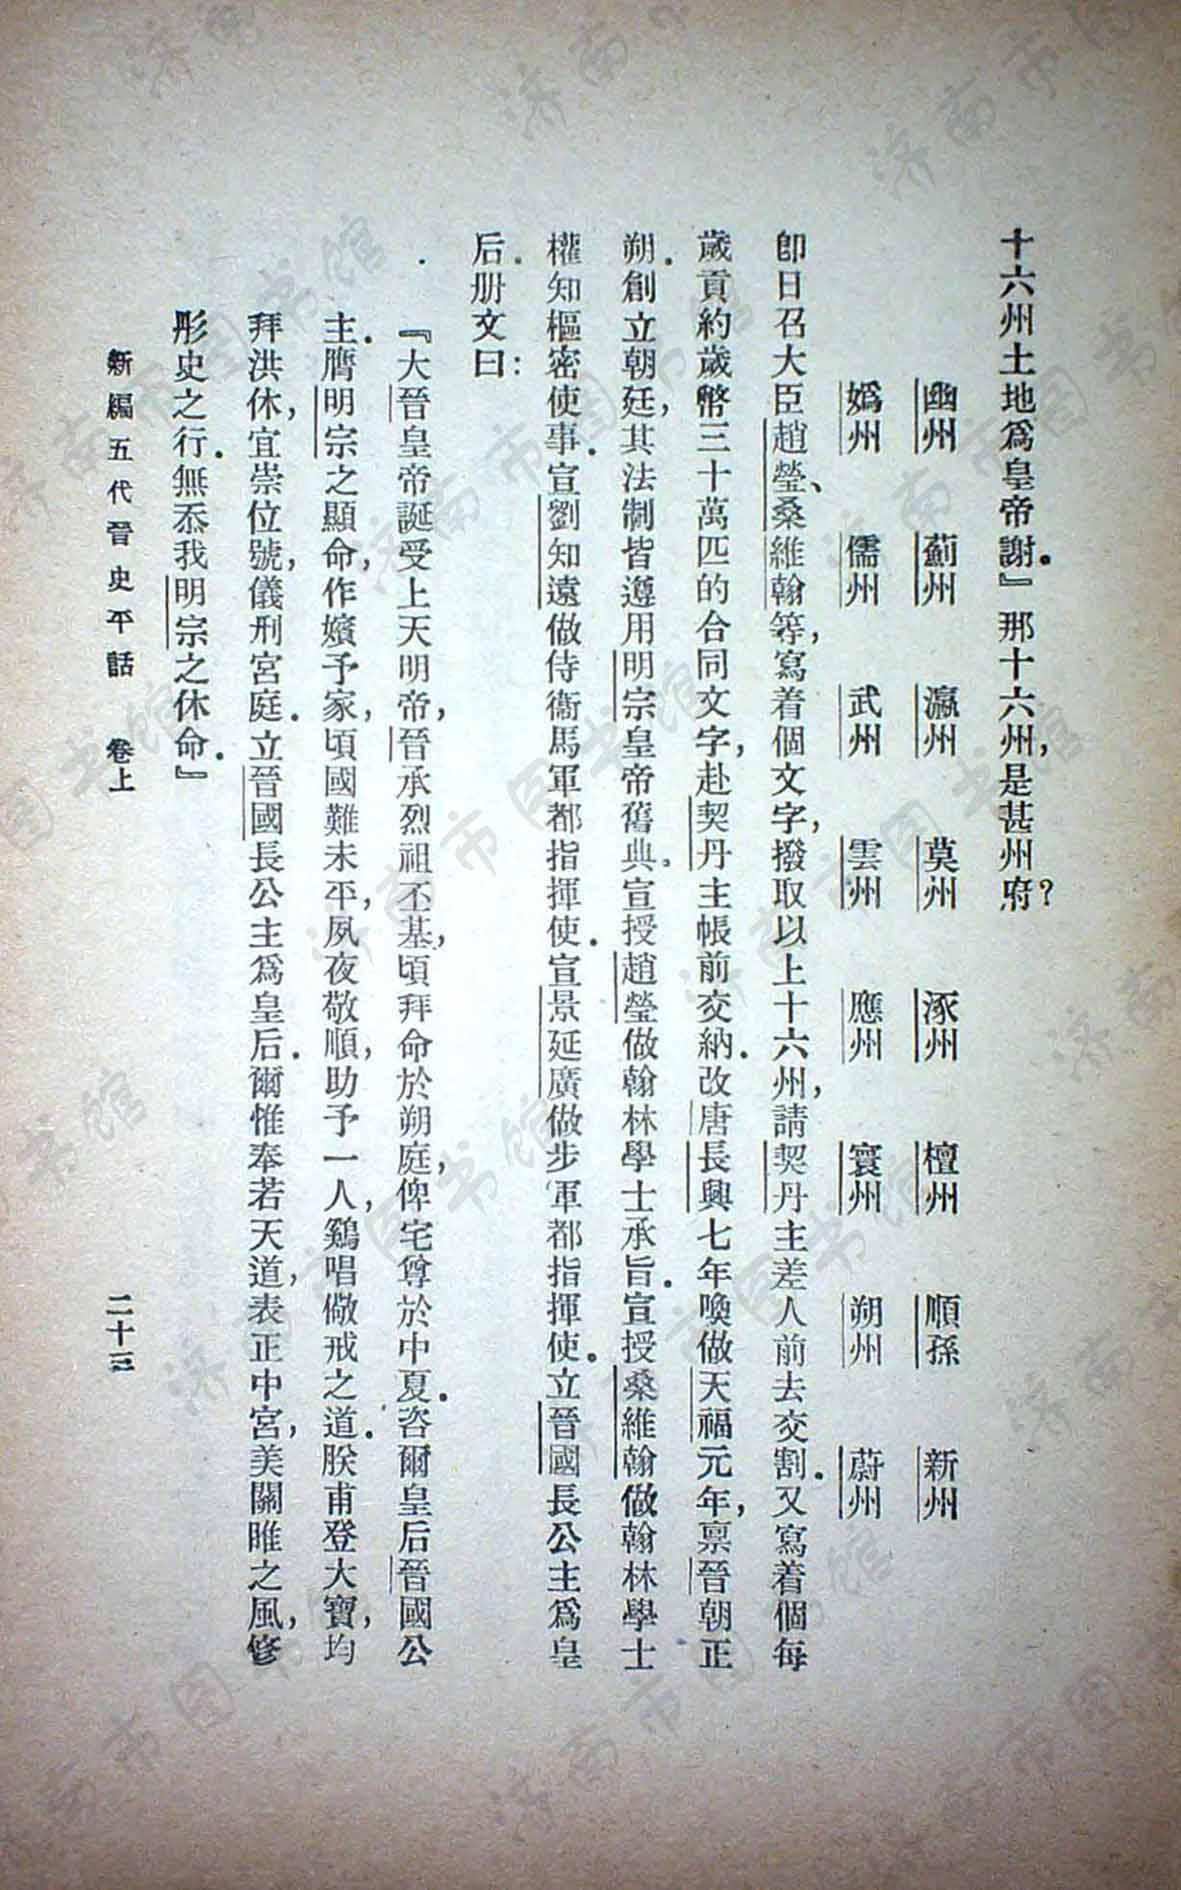 十六州土地爲皇帝謝。』那十六州，是甚州府？
幽州　薊州　瀛州　莫州　涿州　檀州　順孫　新州
嬀州　儒州　武州　雲州　應州　寰州　朔州　蔚州
卽日召大臣趙瑩、桑維翰等，寫着個文字，撥取以上十六州，請契丹主差人前去交割。又寫着個每
歲貢約歲幣三十萬匹的合同文字，赴契丹主帳前交納。改唐長興七年喚做天福元年，禀晉朝正
朔。創立朝廷，其法制皆遵用明宗皇帝舊典。宣授趙瑩做翰林學士承旨。宣授桑維翰做翰林學士
權知樞密使事。宣劉知遠做侍衞馬軍都指揮使。宣景延廣做步軍都指揮使。立晉國長公主爲皇
后。册文曰：
『大晉皇帝誕受上天明帝，晉承烈祖丕基，頃拜命於朔庭，俾宅尊於中夏。咨爾皇后晉國公
主。膺明宗之顯命，作嬪予家，頃國難未平，夙夜敬順，助予一人，鷄唱儆戒之道。朕甫登大寶，均
拜洪休，宜崇位號，儀刑宮庭。立晉國長公主爲皇后。爾惟奉若天道，表正中宮，美關雎之風，修
彤史之行。無忝我明宗之休命。』
新編五代晉史平話　卷上　二十三
济南市图书馆